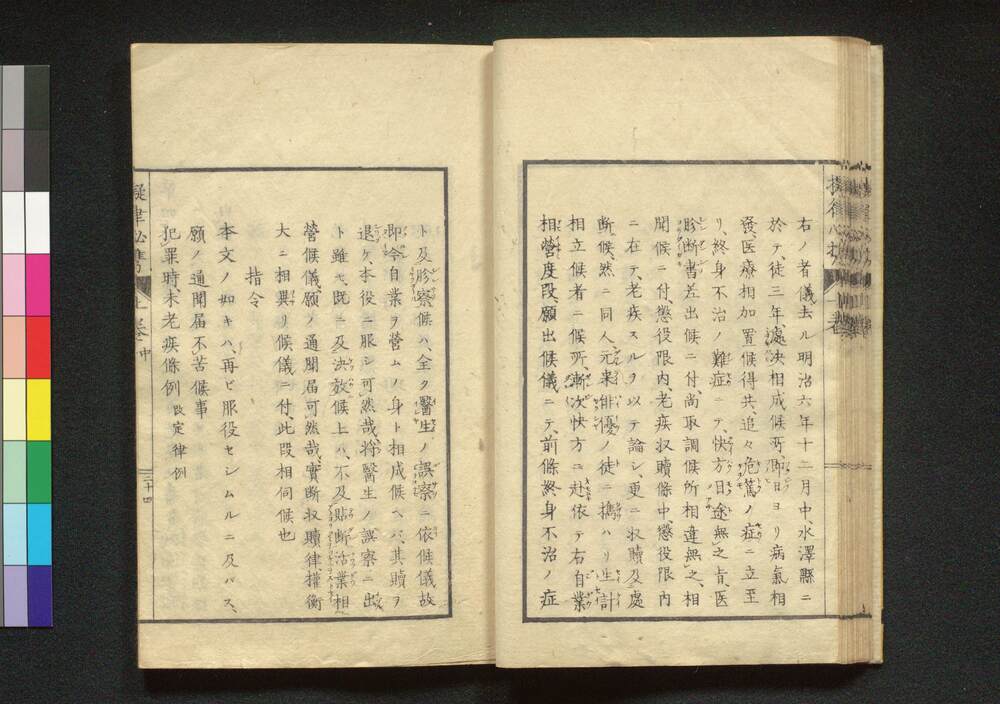 右ノ者儀去ル明治六年十二月中、水澤縣ニ
於テ、徒三年處決相成候所、即日ヨリ病氣相
發、醫療相加置候得共、追々危篤ノ症ニ立至
リ、終身不治ノ難症ニテ、快方日途無之旨、医
診断書差出候ニ付、尚取調候所相違無之、相
聞候ニ付、懲役限内、老疾収贖條中、懲役限内
ニ在テ、老疾スルヲ以テ論シ、更ニ収贖及處
断候、然ニ同人元来俳優ノ徒ニ携ハリ生計
相立候者ニ候所、漸次快方ニ赴依テ右自業
相營度段、願出候儀ニテ、前條終身不治ノ症
ト及診察候ハ、全ク醫生ノ誤察ニ依候儀故
即今自業ヲ營ムノ身ト相成候ヘバ、其贖ヲ
退ケ、本役ニ服シ可然哉、將醫生ノ誤察ニ出
ト雖モ、既ニ及決放候上ハ、不及貼断治業相
營候儀、願ノ通聞届可然哉、實断収贖律權衡
大ニ相異リ候儀ニ付、此段相伺候也
指令
本文ノ如キハ、再ビ服役セシムルニ及バス、
願ノ通聞届不苦候事
犯罪時、未老疾條例 改定律例
擬律必携
上巻 中
三十四